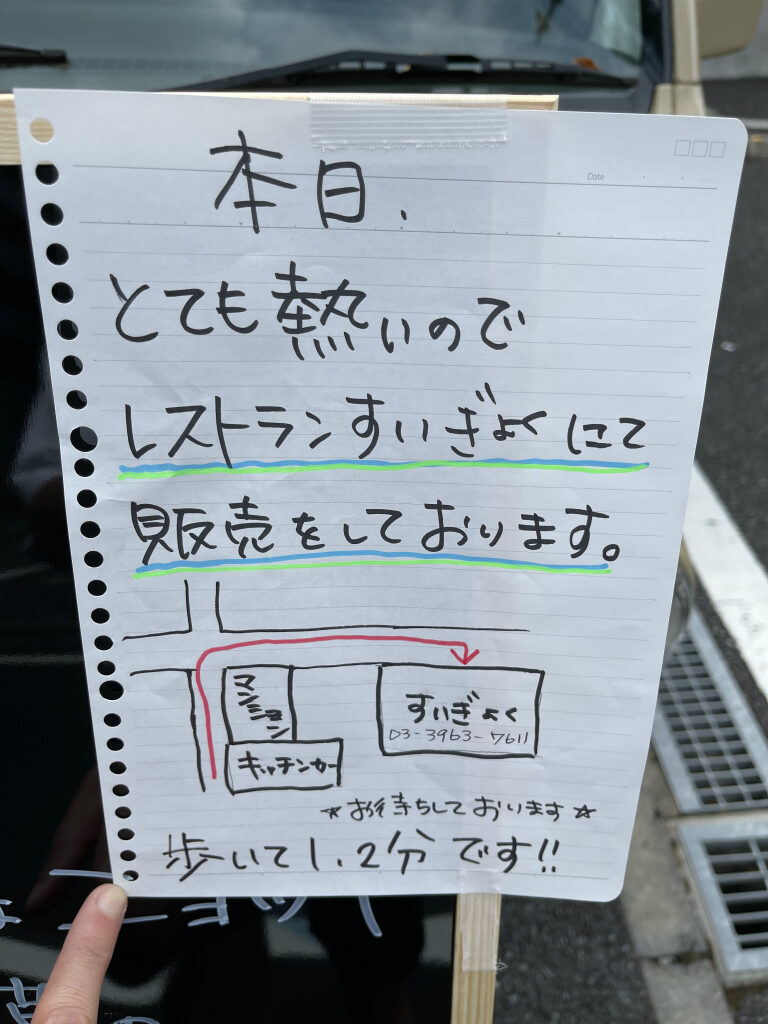 Date
本日、
とても熱いので
レストランすいぎょくにて
販売をしております。
マンション
キッチンカー
すいぎょく
03-3963-7611
☆お待ちしております☆
歩いて1.2分です!!